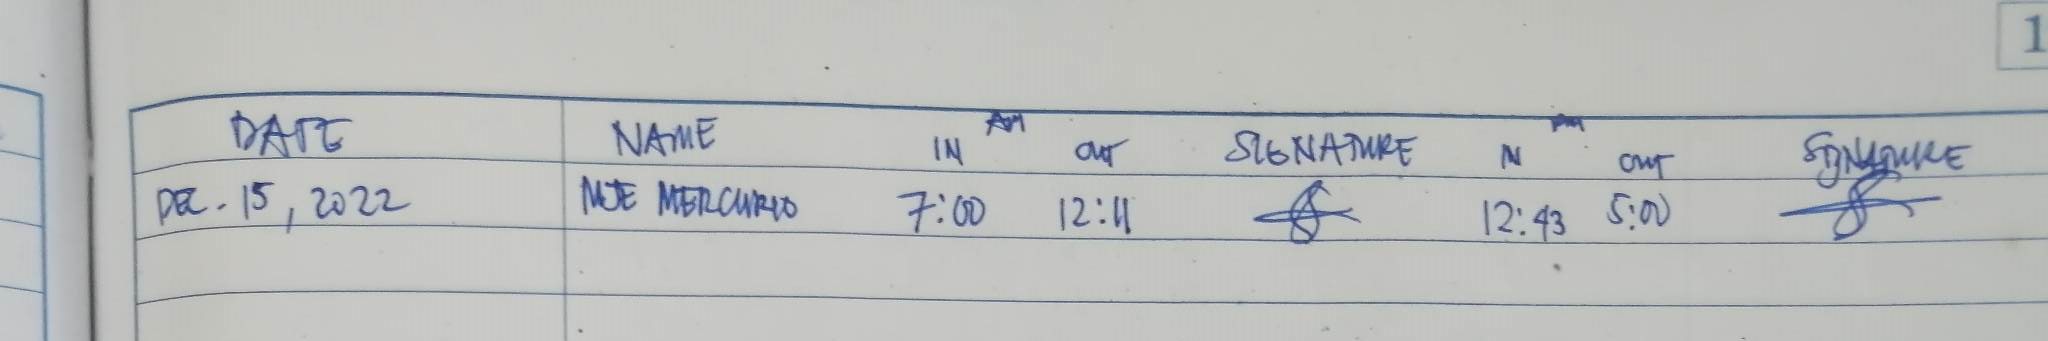 1
AM PM
DATE NAME IN OUT SIGNATURE IN OUT SIGNATURE
DEC. 15, 2022 MERCURIO 7:00 12:11 12:43 5:00